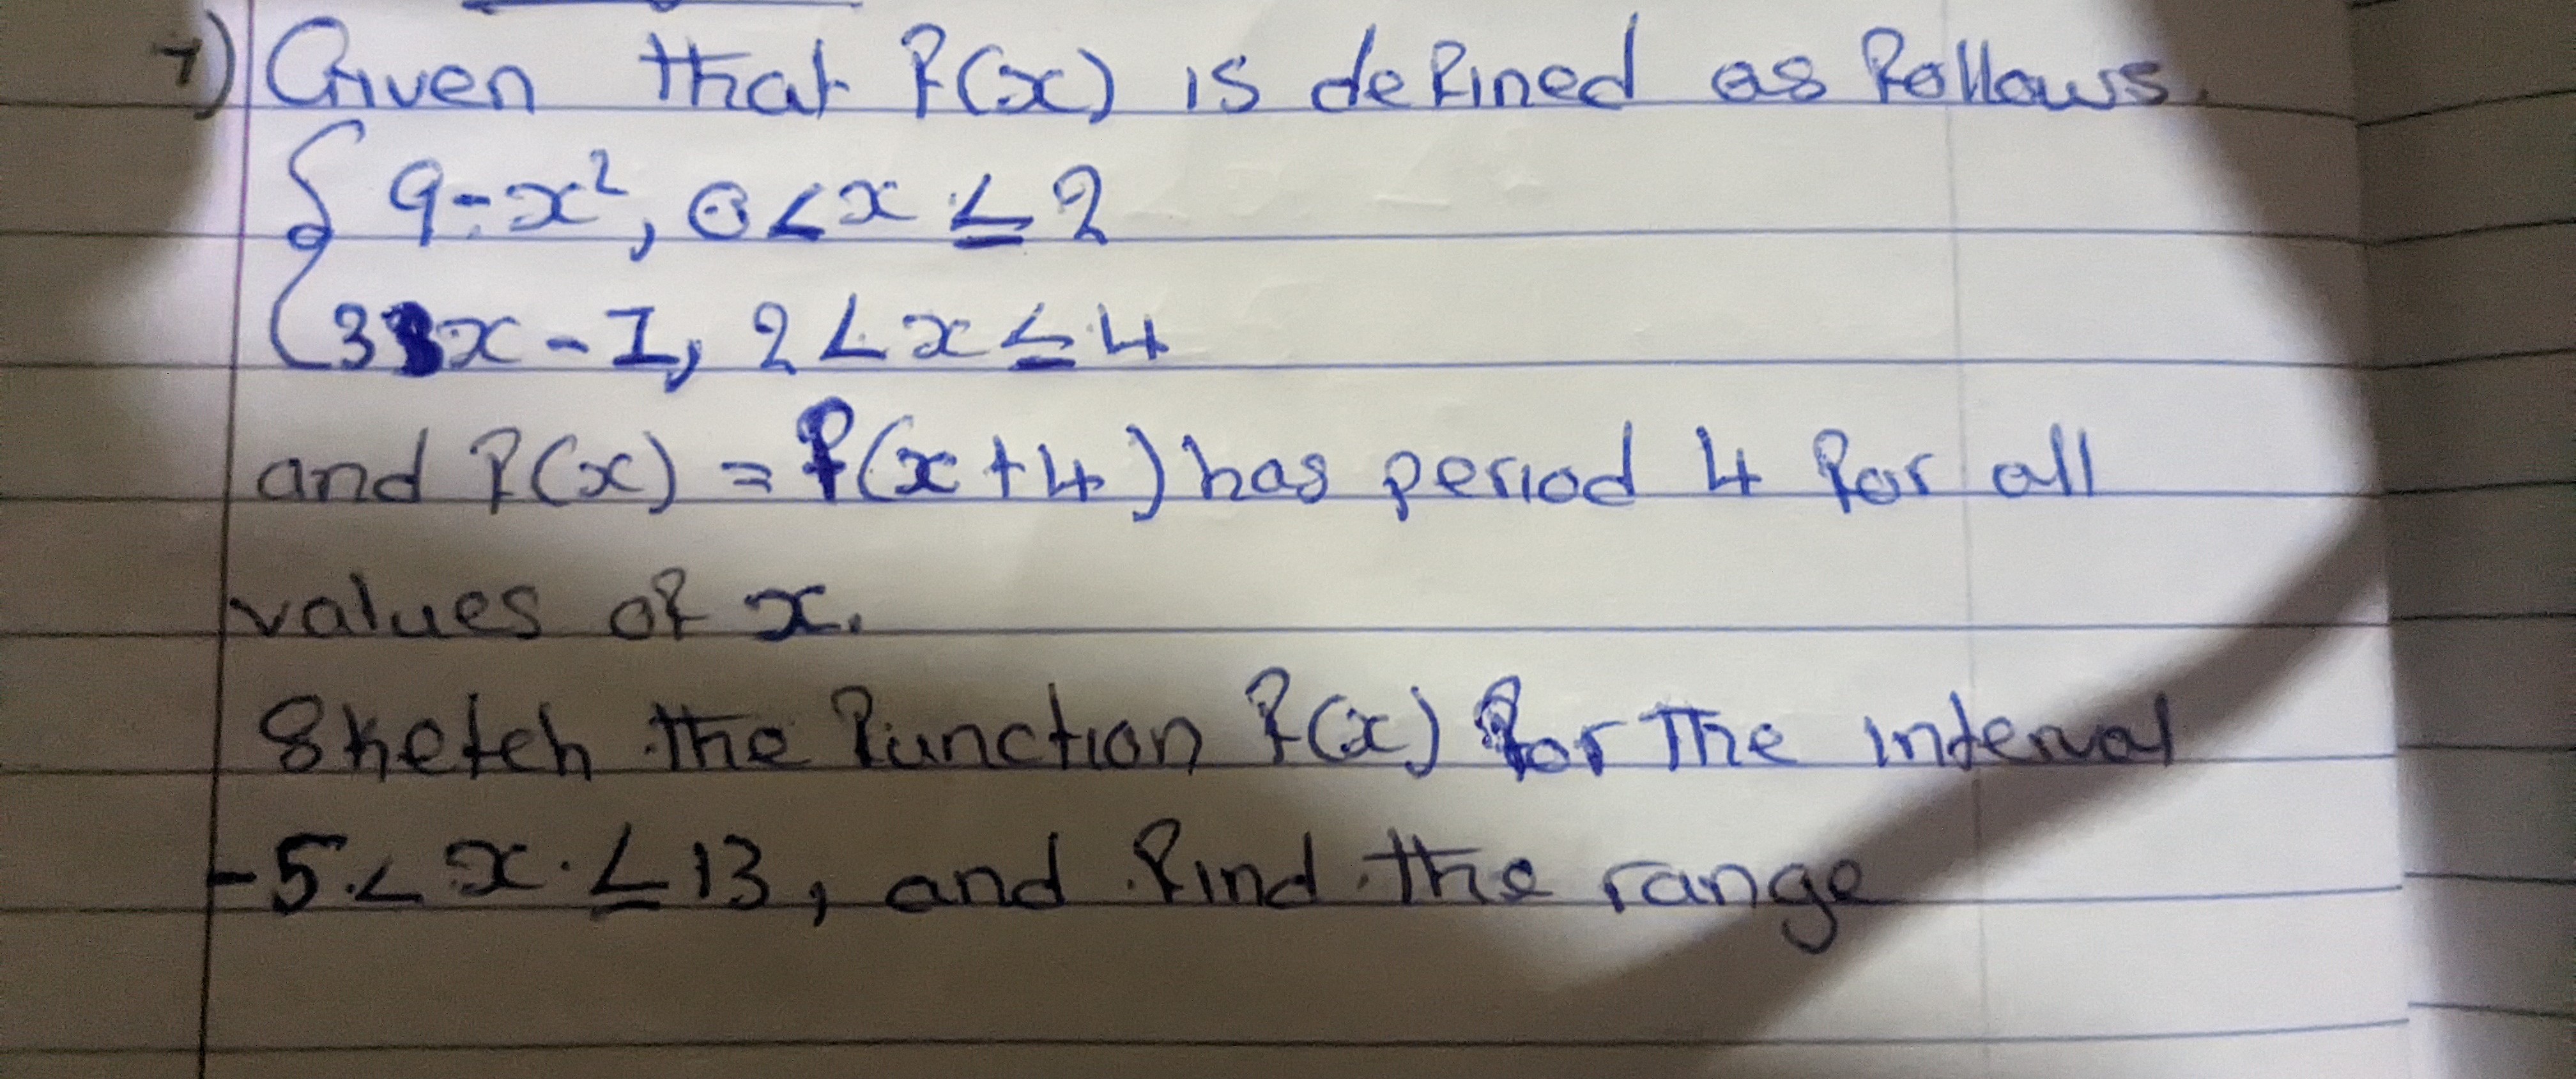 7) Given that f(x) is defined as follows.
{ 9-x², 0<x≤2
3x-1, 2<x≤4
and f(x) = f(x+4) has period 4 for all
values of x.
Sketch the function f(x) for The interval
-5<x≤13, and find the range